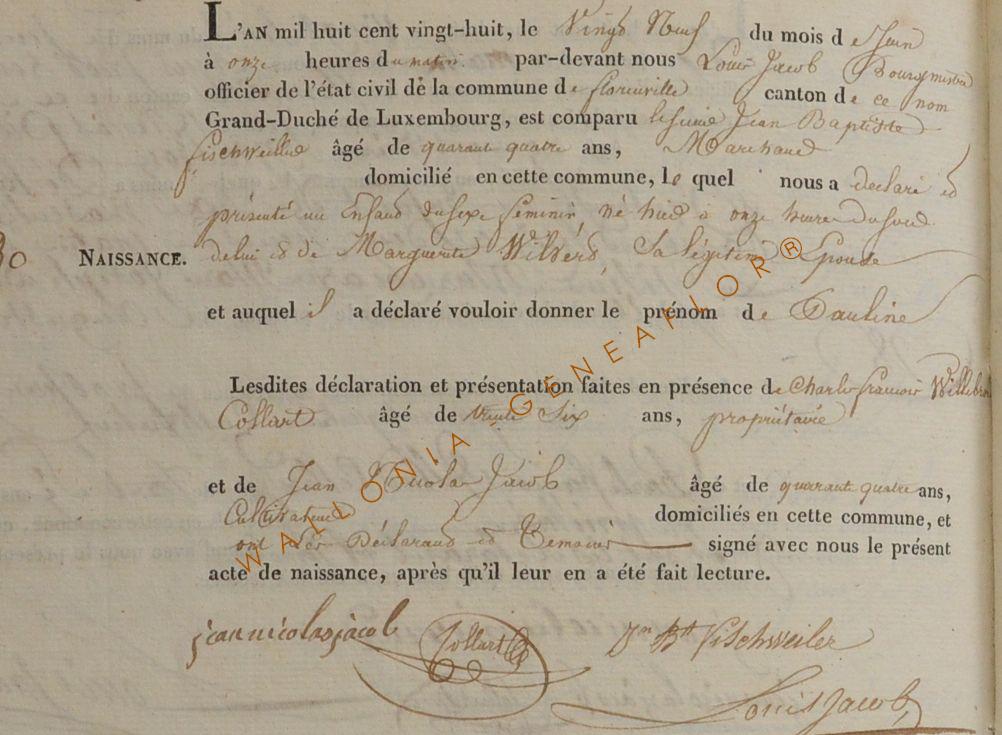 L'AN mil huit cent vingt-huit, le Vingt Neuf du mois de Juin
à onze heures du matin par-devant nous Louis Jacob Bourgmestre
officier de l'état civil de la commune de florenville canton de ce nom
Grand-Duché de Luxembourg, est comparu le sieur Jean Baptiste
fischweiller âgé de quarant quatre ans, Marchand
domicilié en cette commune, le quel nous a declaré et
présenté un Enfant du sexe feminin, né hier à onze heure du soir
30 NAISSANCE. de lui et de Marguerite Wilberd, Sa légitime Epouse
et auquel il a déclaré vouloir donner le prénom de Pauline
Lesdites déclaration et présentation faites en présence de Charle francois Willibrod
Collart âgé de trente Six ans, propriétaire
et de Jean Nicolas Jacob âgé de quarant quatre ans,
Cultivateur domiciliés en cette commune, et
ont les Déclarant et Temoins signé avec nous le présent
acte de naissance, après qu'il leur en a été fait lecture.
jean nicolas jacob Collart Jn Bte fischweiler
Louis Jacob
WALLONIA GENEAFLOR®